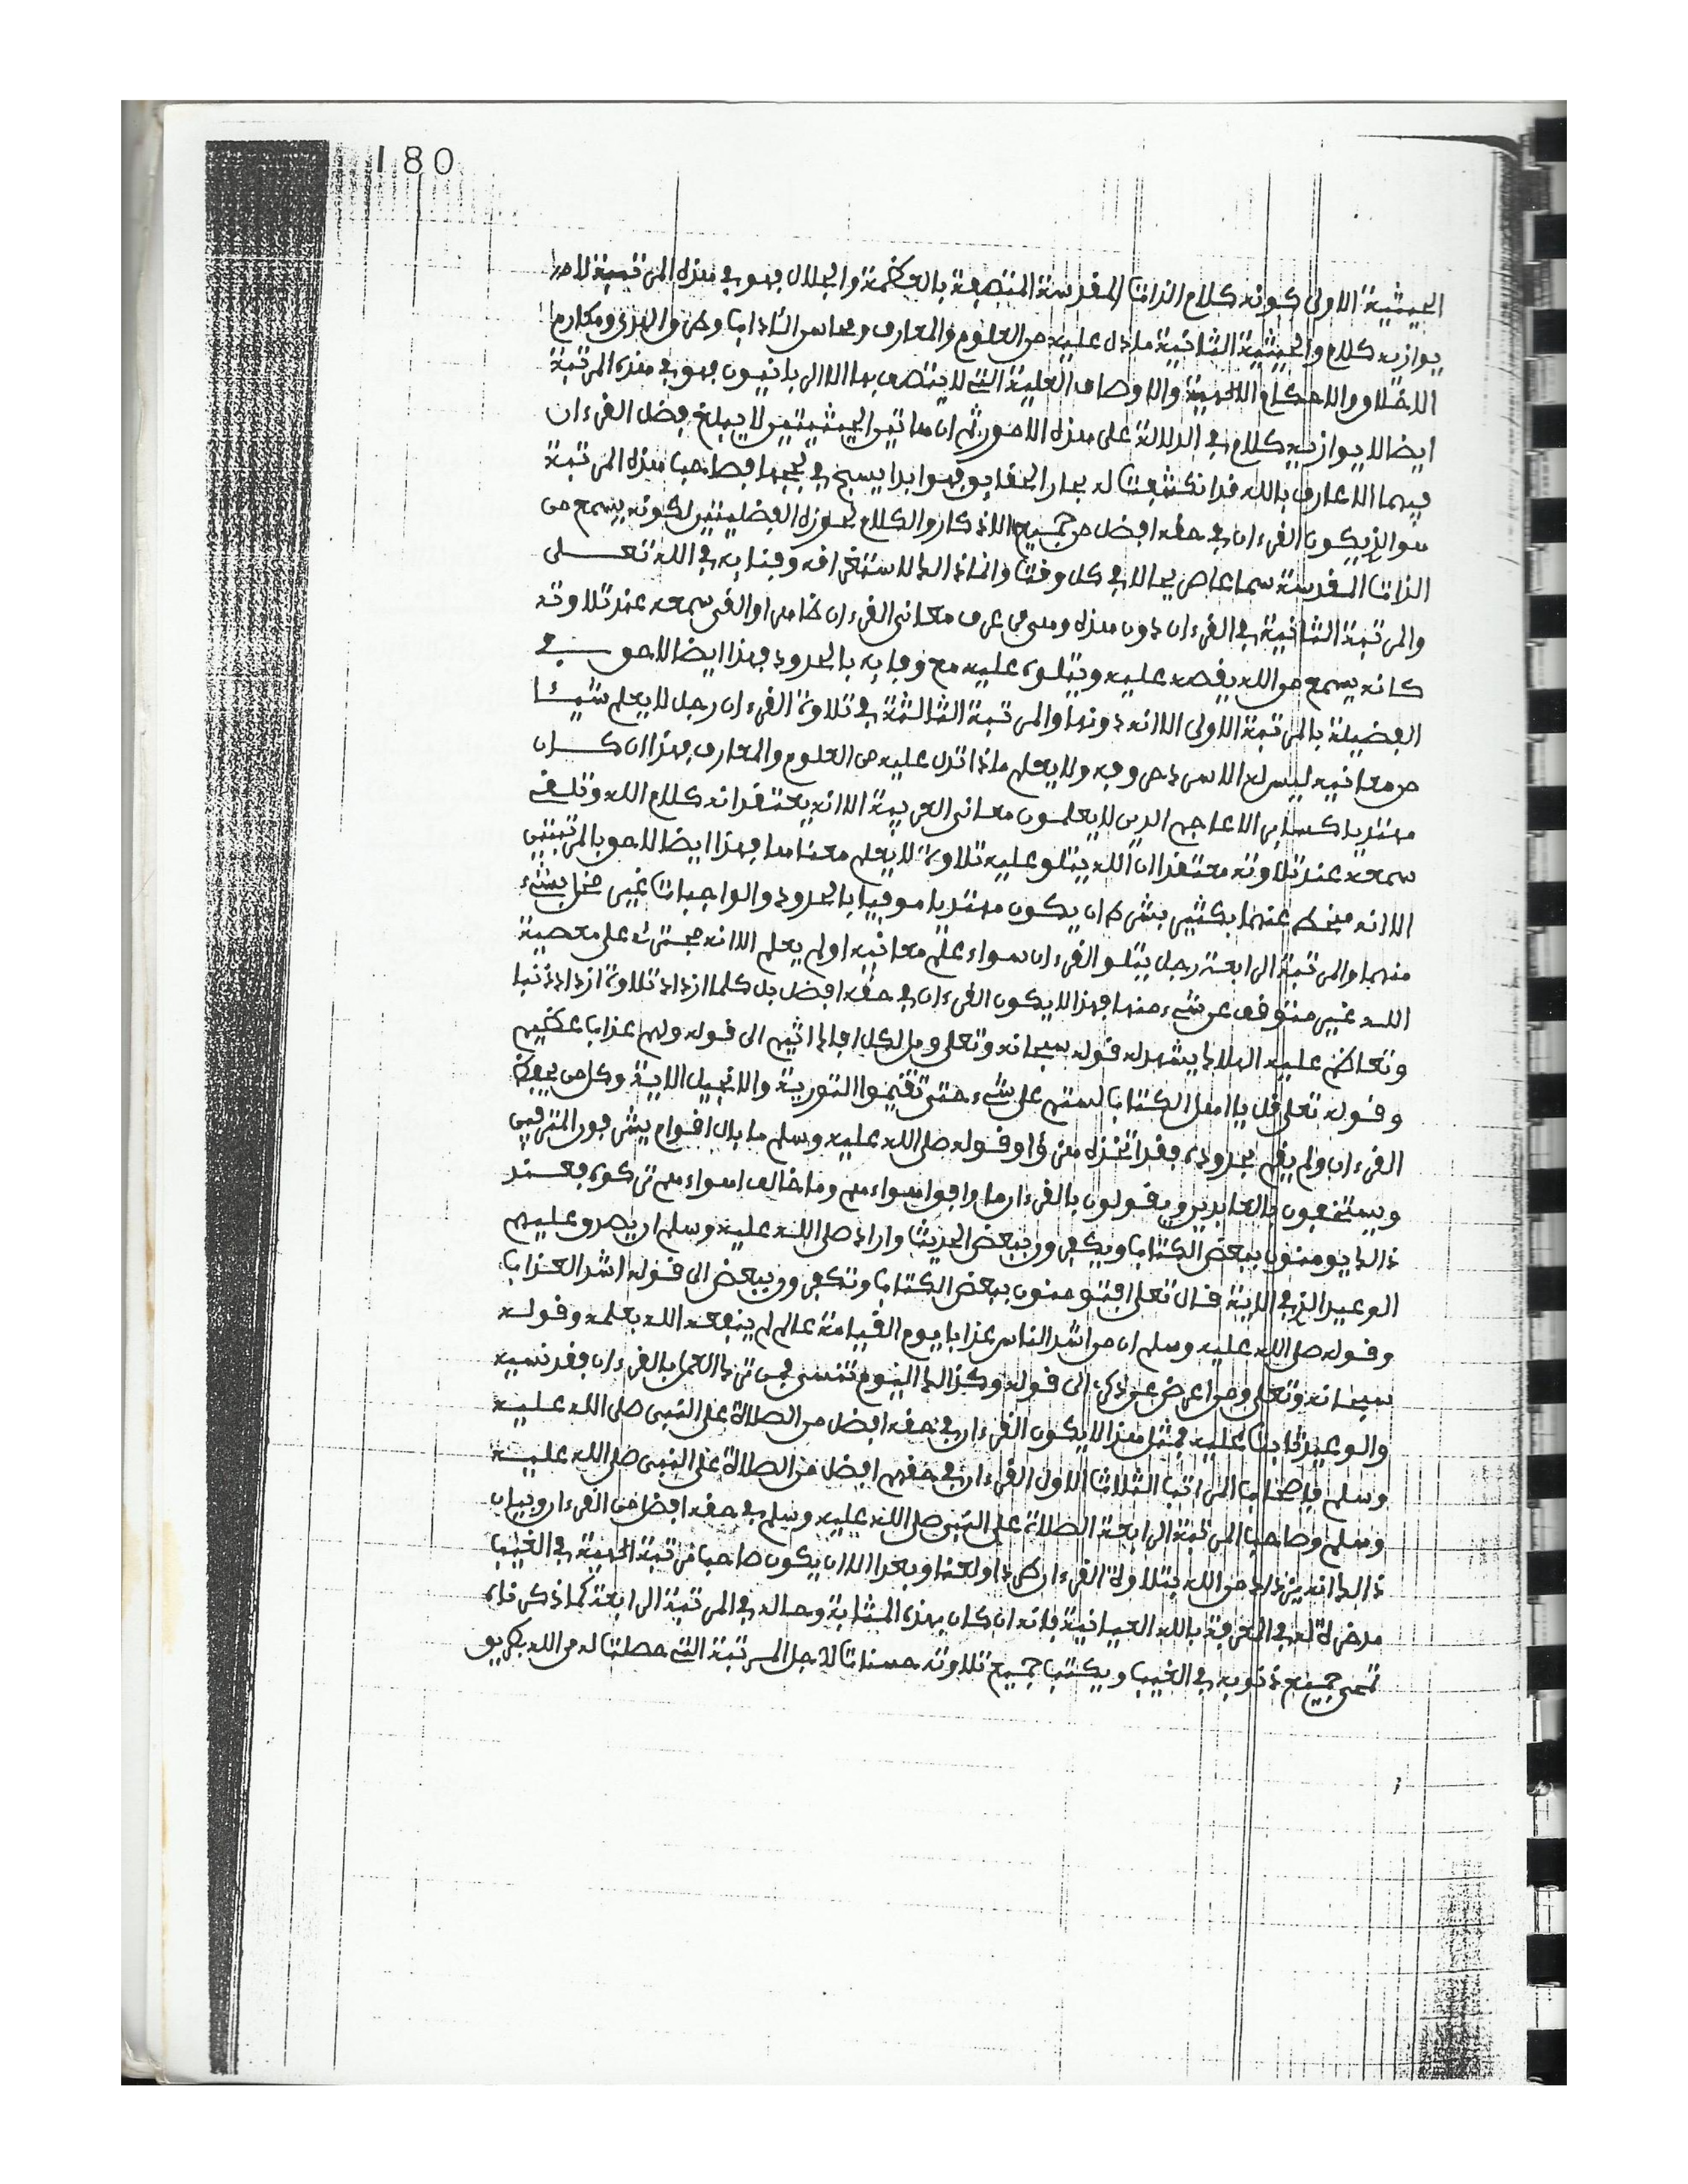 180
الحيثية الاولى كونه كلام الذات المقدسة المتصفة بالعظمة والجلال فهو في هذه المرتبة لا
يوازيه كلام والحيثية الثانية ما دل عليه من العلوم والمعارف ومحاسن الئاداب وطرق الهدى ومكارم
الاخلاق والاحكام الالهية والاوصاف العلية التى لا يتصف بها الا الربانيون فهو في هذه المرتبة
ايضا لا يوازيه كلام في الدلالة على هذه الامور ثم ان هاتين الحيثيتين لا يبلغ فضل القرءان
فيهما الا عارف بالله قد انكشفت له بحار الحقايق فهو ابدا يسبح في لججها فصاحب هذه المرتبة
هو الذى يكون القرءان في حقه افضل من جميع الاذكار والكلام لحوزه الفضيلتين لكونه يسمع من
الذات المقدسة سماعا صريحا لا في كل وقت وانما ذالك لاستغراقه وفنايه في الله تعلى
والمرتبة الثانية في القرءان دون هذه وهى من عرف معانى القرءان ظاهرا والقى سمعه عند تلاوته
كانه يسمع من الله يقصه عليه ويتلوه عليه مع وفايه بالحدود فهذا ايضا لاحق في
الفضيلة بالمرتبة الاولى الا انه دونها والمرتبة الثالثة في تلاوة القرءان رجل لا يعلم شيئا
من معانيه ليس له الا سرد حروفه ولا يعلم ماذا تدل عليه من العلوم والمعارف فهذا ان كان
مهتديا كساير الاعاجم الذين لا يعلمون معانى العربية الا انه يعتقد انه كلام الله ويلقى
سمعه عند تلاوته معتقدا ان الله يتلو عليه تلاوة لا يعلم معناها فهذا ايضا لاحق بالمرتبتين
الا انه منحط عنهما بكثير بشرط ان يكون مهتديا موفيا بالحدود والواجبات غير مخل بشىء
منهما والمرتبة الرابعة رجل يتلو القرءان سواء علم معانيه او لم يعلم الا انه مجترئ على معصية
الله غير متوقف عن شىء منها فهذا لا يكون القرءان في حقه افضل بل كلما ازداد تلاوة ازداد ذنبا
وتعاظم عليه الهلاك يشهد له قوله سبحانه وتعلى ويل لكل افاك اثيم الى قوله ولهم عذاب عظيم
وقوله تعلى قل يا اهل الكتاب لستم على شىء حتى تقيموا التورية والانجيل الاية وكل من يحفظ
القرءان ولم يقم بحدوده فقد اتخذه هزؤا وقوله صلى الله عليه وسلم ما بال اقوام يشرفون المترفين
ويستخفون بالعابدين ويقولون بالقرءان ما وافق اهواءهم وما خالف اهواءهم تركوه فعند
ذالك يومنون ببعض الكتاب ويكفرون ببعض الحديث واراد صلى الله عليه وسلم ان يصدق عليهم
الوعيد الذى في الاية قال تعلى افتومنون ببعض الكتاب وتكفرون ببعض الى قوله اشد العذاب
وقوله صلى الله عليه وسلم ان من اشد الناس عذابا يوم القيامة عالم لم ينفعه الله بعلمه وقوله
سبحانه وتعلى ومن اعرض عن ذكرى الى قوله وكذالك اليوم تنسى فمن ترك العمل بالقرءان فقد نسيه
والوعيد ثابت عليه فمثل هذا لا يكون القرءان في حقه افضل من الصلاة على النبى صلى الله عليه
وسلم فاصحاب المراتب الثلاث الاول القرءان في حقهم افضل من الصلاة على النبى صلى الله عليه
وسلم وصاحب المرتبة الرابعة الصلاة على النبى صلى الله عليه وسلم في حقه افضل من القرءان وبيان
ذالك انه يزداد من الله بتلاوة القرءان طردا ولعنا وبعدا الا ان يكون صاحب مرتبة الهية في الغيب
مدخرة له في المعرفة بالله العيانية فانه ان كان بهذه المثابة وحاله في المرتبة الرابعة كما ذكرناه
تمحى جميع ذنوبه في الغيب ويكتب جميع تلاوته حسنات لاجل المرتبة التى حصلت له من الله بطريق